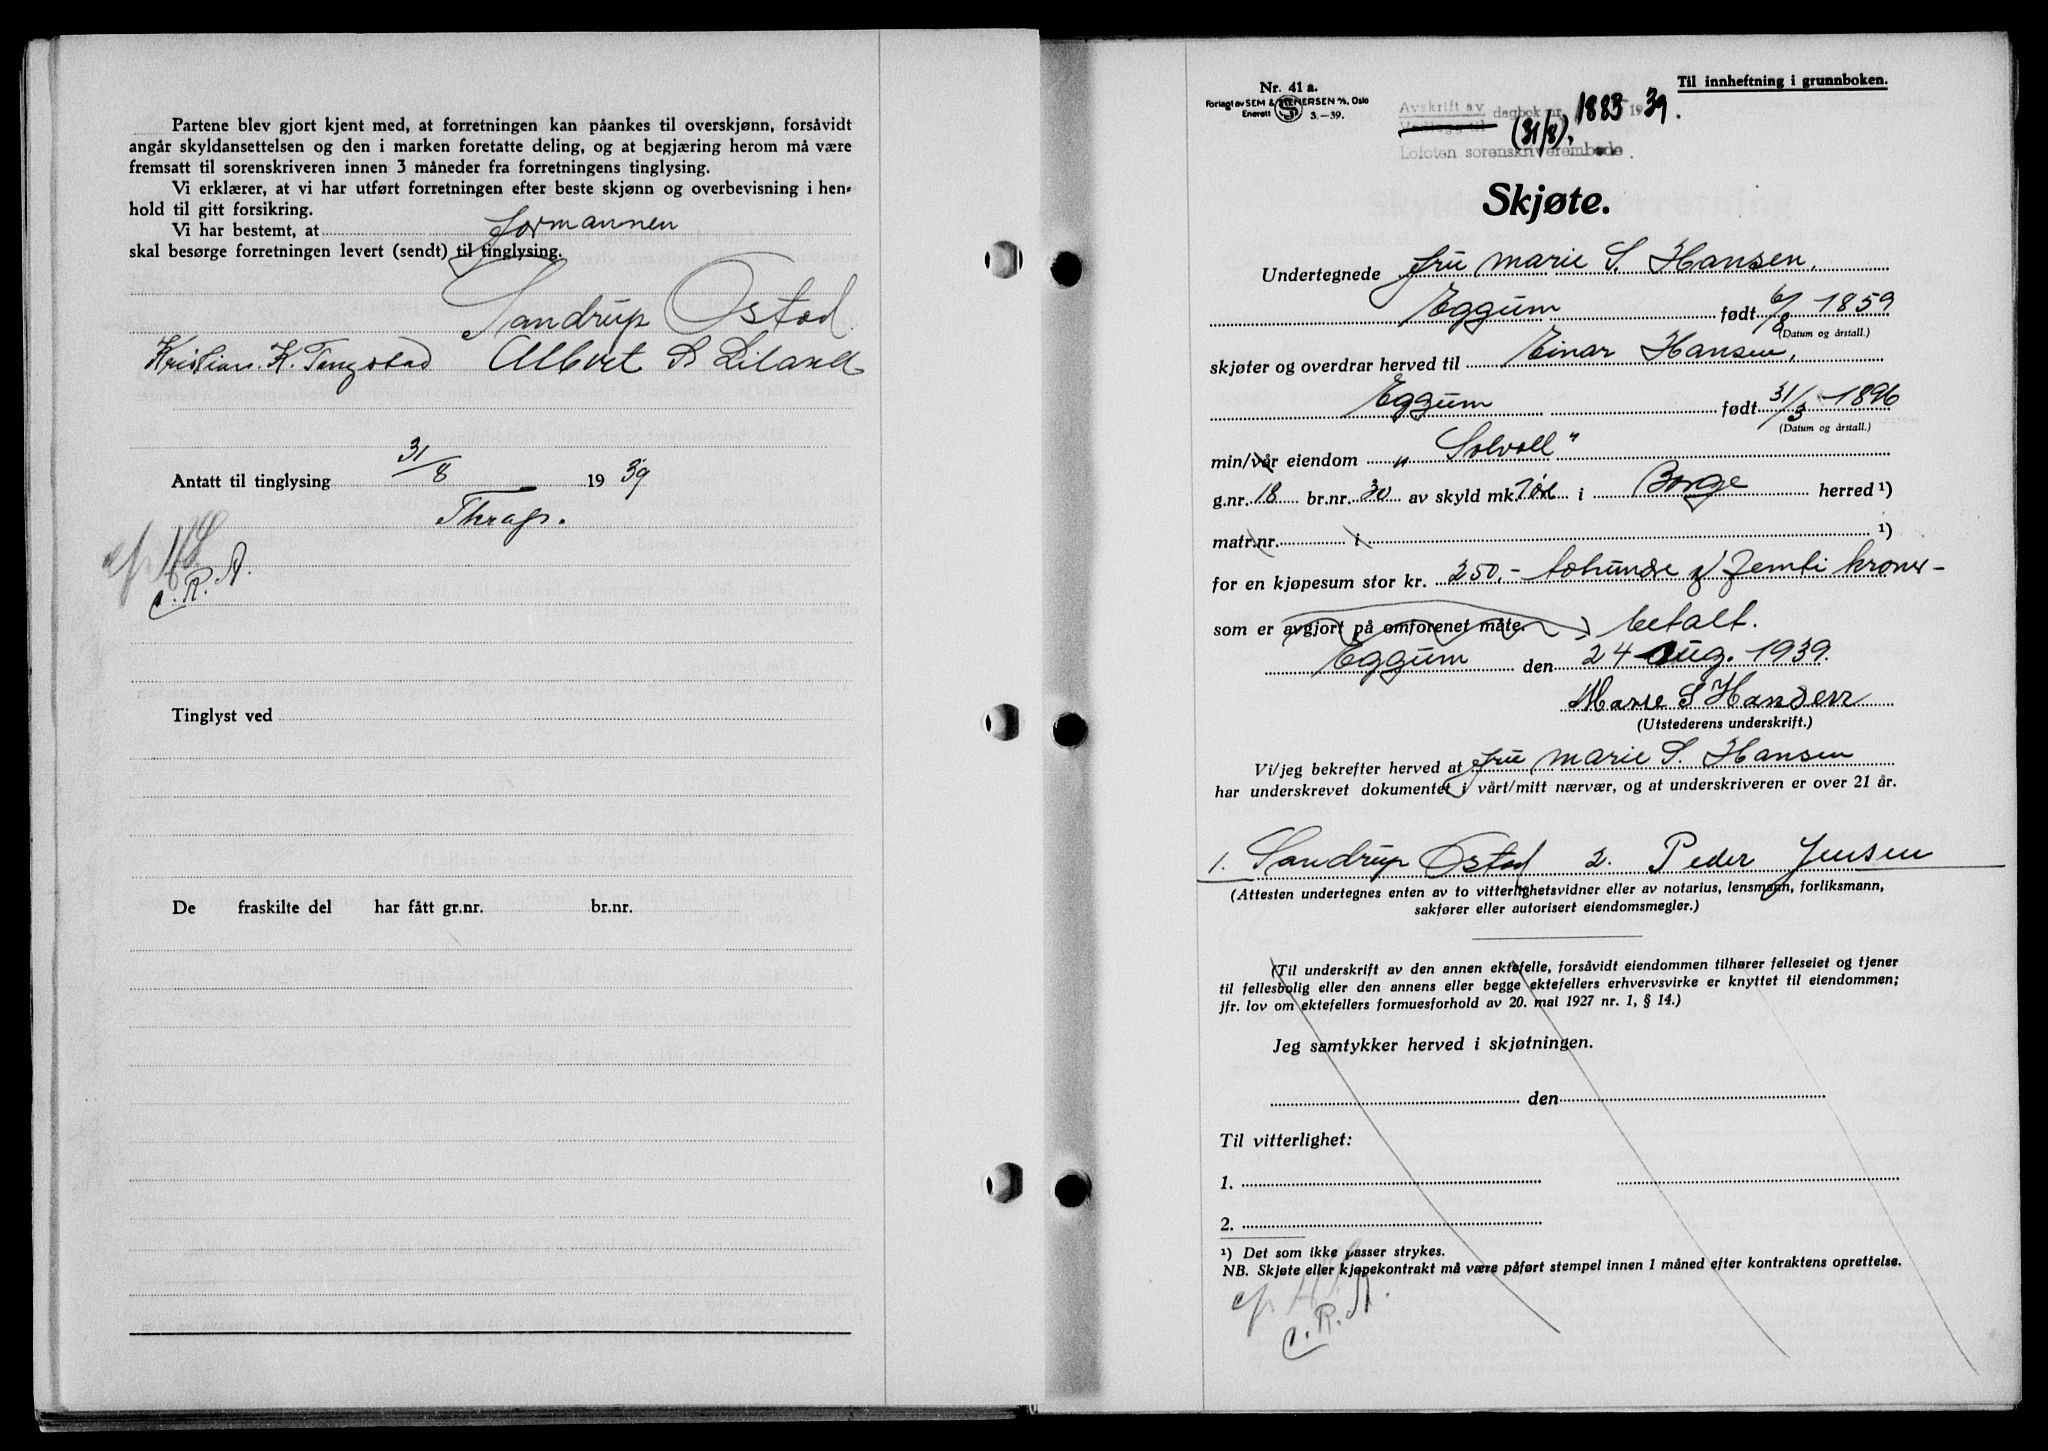 Partene blev gjort kjent med, at forretningen kan påankes til overskjønn, forsåvidt
angår skyldansettelsen og den i marken foretatte deling, og at begjæring herom må være
fremsatt til sorenskriveren innen 3 måneder fra forretningens tinglysing.
Vi erklærer, at vi har utført forretningen efter beste skjønn og overbevisning i hen-
hold til gitt forsikring.
Vi har bestemt, at formannen
skal besørge forretningen levert (sendt) til tinglysing.
Sandrup Ostad
Kristian K. Tangstad Albert S Liland
Antatt til tinglysing 31/8 1939
Thrap.
C.R.A.
Tinglyst ved
De fraskilte del har fått gr.nr. br.nr.
Til innheftning i grunnboken.
Nr. 41 a.
Forlagt av SEM & STENERSEN A/S, Oslo
Enerett S 3.–39.
Avskrift av dagbok nr. 1883 1939.
Vedlegg til
(31/8).
Lofoten sorenskriverembede.
Skjøte.
Undertegnede fru Marie S. Hansen,
Eggum født 6/8 1859
(Datum og årstall.)
skjøter og overdrar herved til Einar Hansen,
Eggum født 31/3 - 1896
(Datum og årstall.)
min/vår eiendom „Solvoll"
g.nr. 18 br.nr. 30 av skyld mk 1 øre i Borge herred ¹)
matr.nr. i ¹)
for en kjøpesum stor kr. 250,- tohundre og femti kroner -
som er avgjort på omforenet måte. betalt.
Eggum den 24 Aug. 1939.
Marie S Hansen
(Utstederens underskrift.)
Vi/jeg bekrefter herved at fru Marie S. Hansen
har underskrevet dokumentet i vårt/mitt nærvær, og at underskriveren er over 21 år.
1. Sandrup Ostad 2. Peder Jensen
(Attesten undertegnes enten av to vitterlighetsvidner eller av notarius, lensmann, forliksmann,
sakfører eller autorisert eiendomsmegler.)
(Til underskrift av den annen ektefelle, forsåvidt eiendommen tilhører felleseiet og tjener
til fellesbolig eller den annens eller begge ektefellers erhvervsvirke er knyttet til eiendommen;
jfr. lov om ektefellers formuesforhold av 20. mai 1927 nr. 1, § 14.)
Jeg samtykker herved i skjøtningen.
den
Til vitterlighet:
1.
2.
¹) Det som ikke passer strykes.
NB. Skjøte eller kjøpekontrakt må være påført stempel innen 1 måned efter kontraktens oprettelse.
C.R.A.